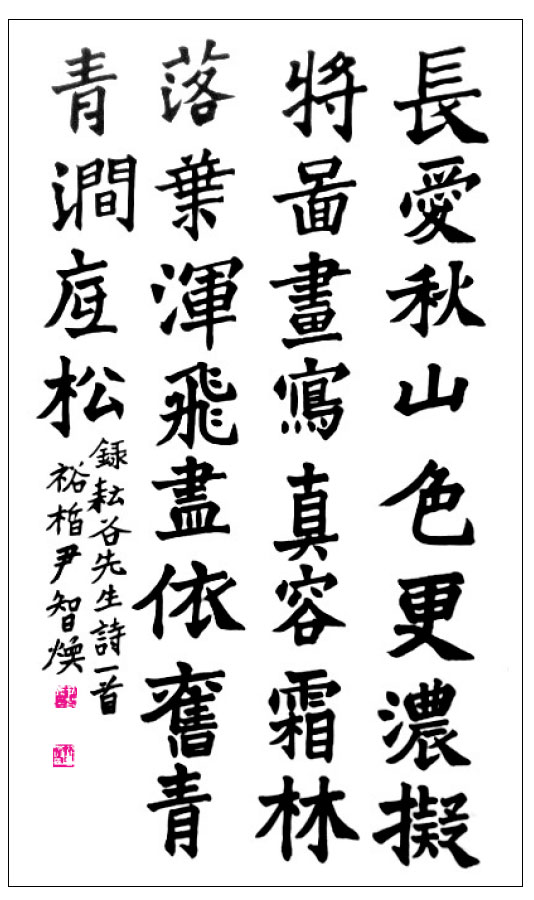 長愛秋山色更濃擬
將啚畫寫真容霜林
落葉渾飛盡依舊青
青澗底松
錄耘谷先生詩一首
裕 尹智煥